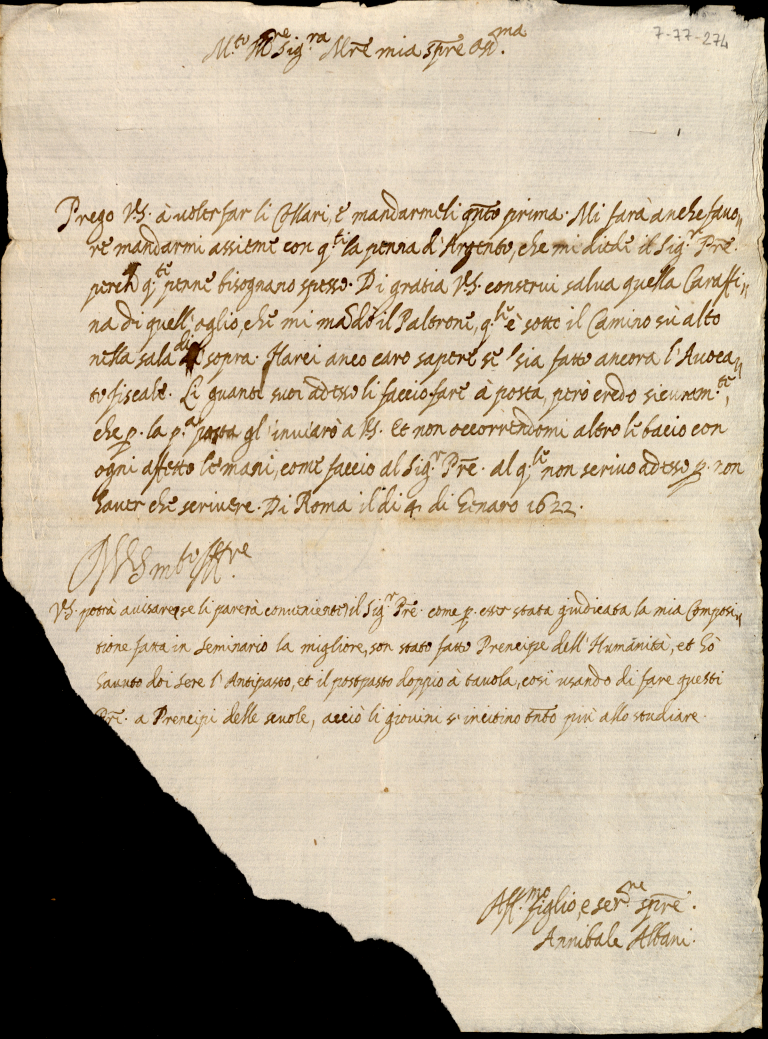 7-77-274
M.to Ill.re Sig.ra M̃re mia sp̃re oss.ma
Prego V.S. à voler far li Collari, e mandarmeli qñto prima. Mi farà anche favo„
re mandarmi assieme con q.ti la penna d'Argento, che mi diede il Sig.r P̃re.
perch q.te penne bisognano spesso. Di gratia V.S. conservi salva quella Caraffi„
na di quell'oglio, che mi mãdò il Paltrone, q.le è sotto il Camino sù alto
nella sala di sopra. Harei anco caro sapere se sia fatto ancora l'Avoca„
to fiscale. Li guanti suoi adesso li faccio fare à posta, però credo sicuram.te,
che p. la p.a posta gl'inviarò a V.S. Et non occorrendomi altro le bacio con
ogni affetto le mani, come faccio al Sig.r P̃re. al q.le non scrivo adesso p. non
haver che scrivere. Di Roma il dì 4 di Genaro 1622.
Di V.S. m.to Ill.re
V.S. potrà avisare, se li parerà conveniente, il Sig.r P̃re. come p. esser stata giudicata la mia Composi„
tione fatta in Seminario la migliore, son stato fatto Prencipe dell'Humanità, et hò
havuto doi sere l'Antipasto, et il postpasto doppio à tavola, così usando di fare questi
P̃ri. a Prencipi delle scuole, acciò li giovini s'incitino tñto più allo studiare.
Aff.mo figlio, e ser.re sp̃re.
Annibale Albani.